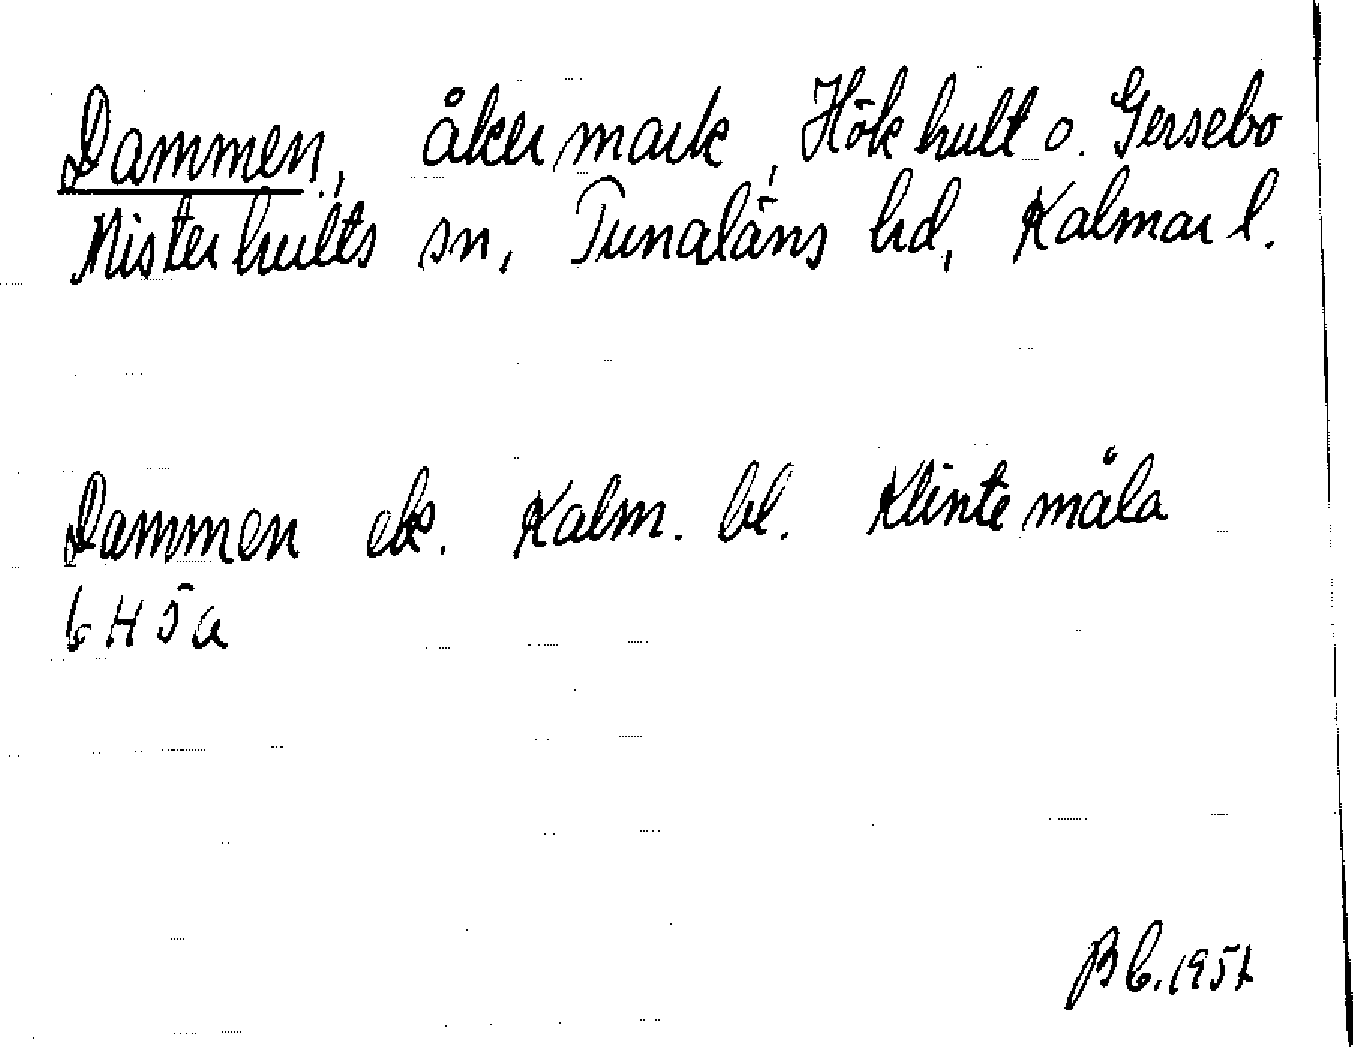 Dammen, åkermark, Hökhult o. Gersebo
Misterhults sn, Tunaläns hd, Kalmar l.
Dammen ek. Kalm. bl. Klintemåla
6H5a